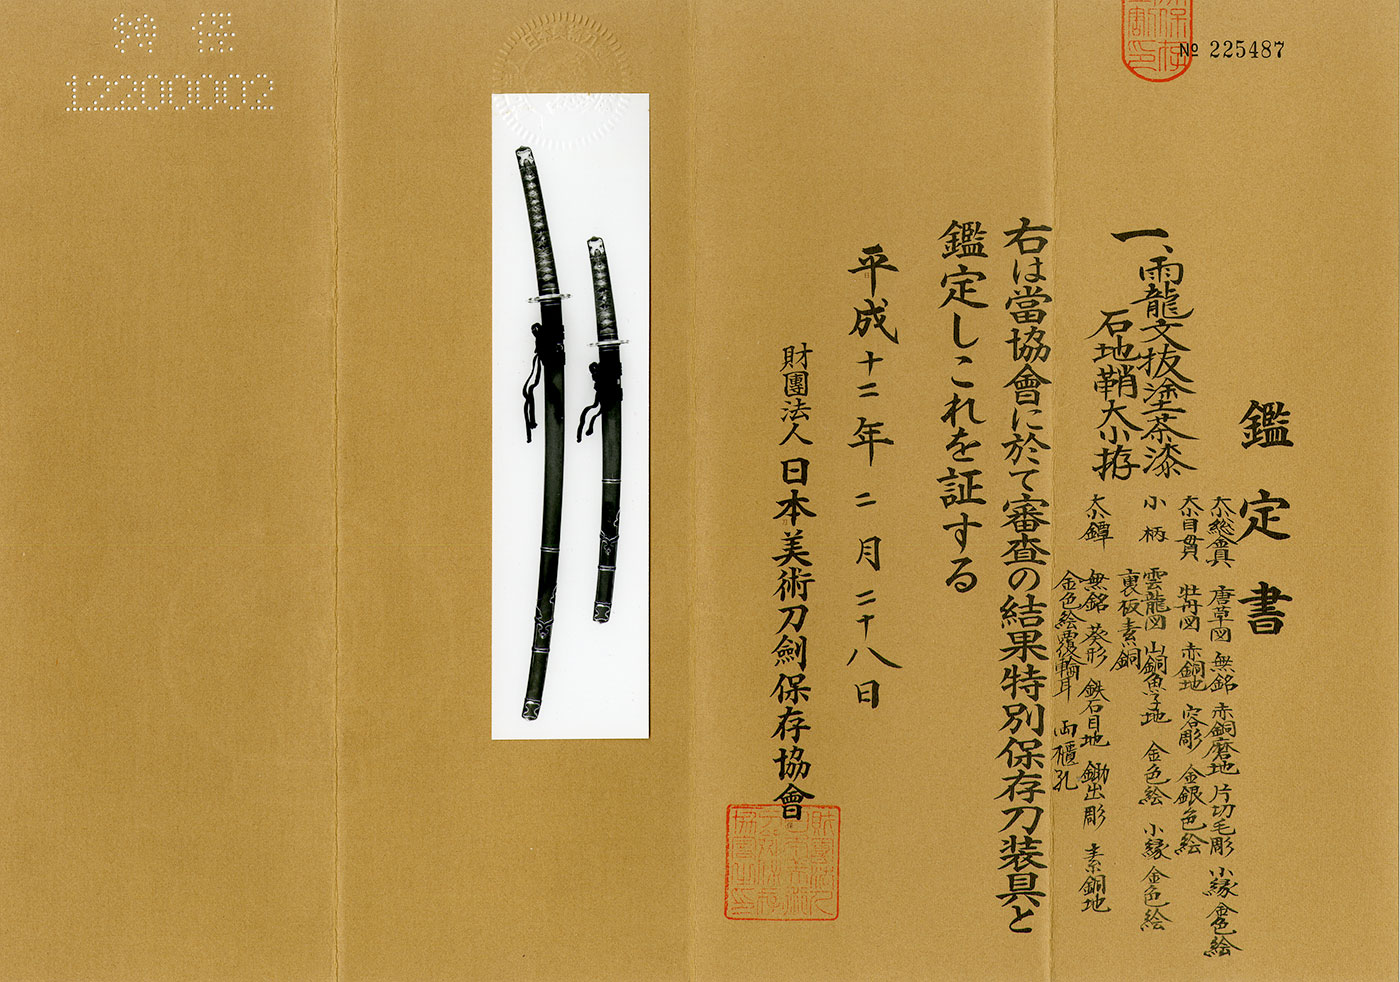 鑑定書
№ 225487
一、雨龍文抜塗茶漆
石地鞘大小拵
大小総金具 唐草図 無銘 赤銅磨地 片切毛彫 小縁金色絵
大小目貫 牡丹図 赤銅地 容彫 金銀色絵
小柄 雲龍図 山銅魚子地 金色絵 小縁金色絵
裏板素銅
大小鐔 無銘 葵形 鉄石目地 鋤出彫 素銅地
金色絵覆輪耳 両櫃孔
右は當協會に於て審査の結果特別保存刀装具と
鑑定しこれを証する
平成十二年二月二十八日
財團法人 日本美術刀劍保存協會
特保
12200002